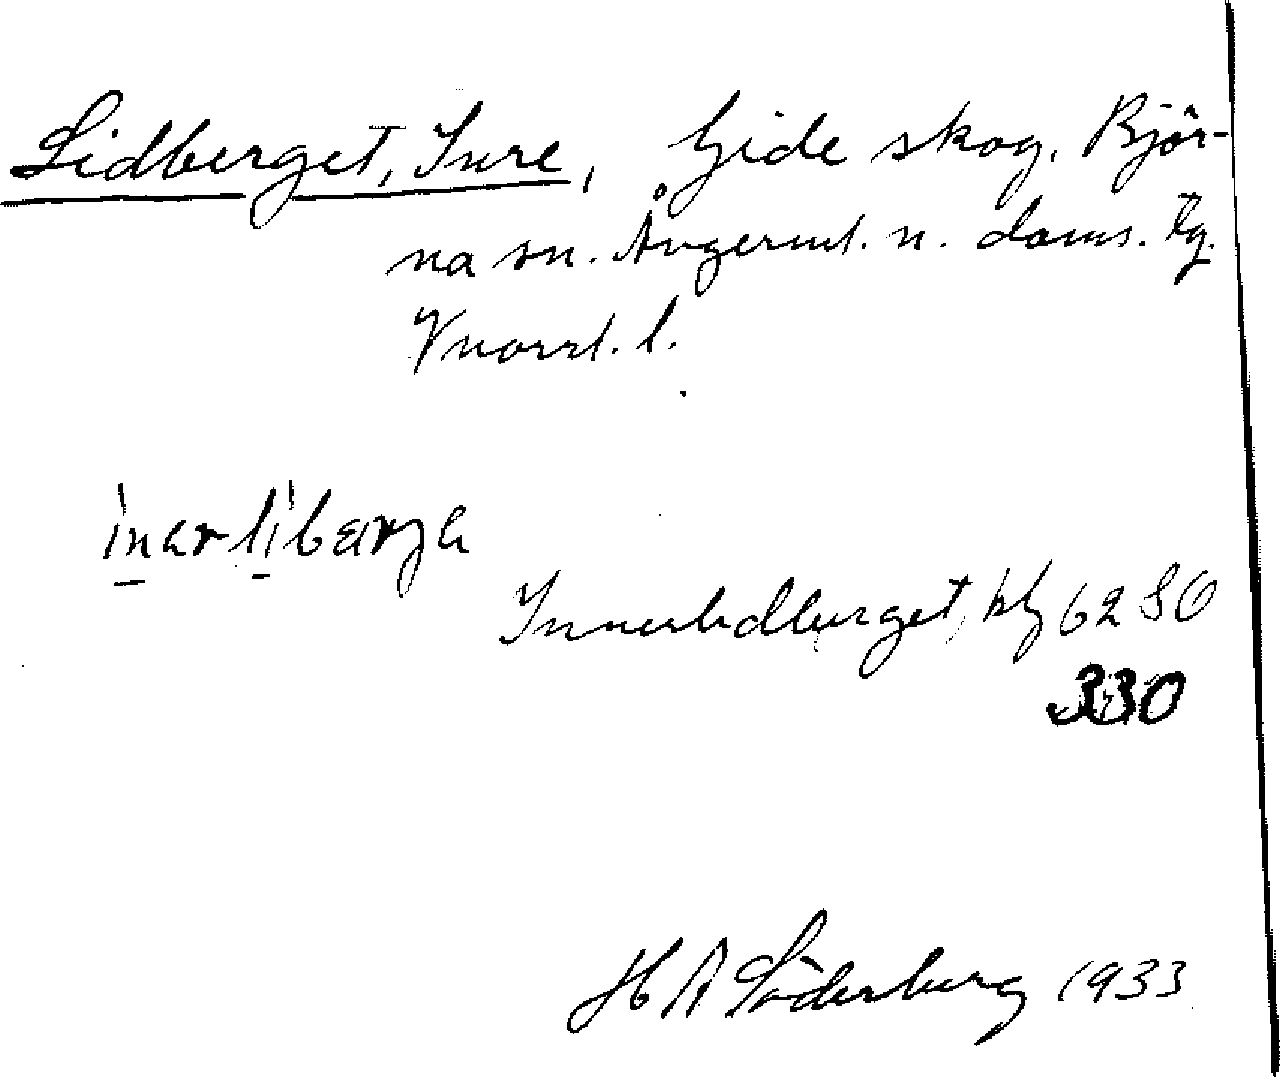 Lidberget, Inre, Gide skog, Björ-
na sn. Ångerml. n. doms. tg.
Vnorrl. l.
inər lìbærjə
Innerlidberget, bg 6280
330
H A Söderberg 1933